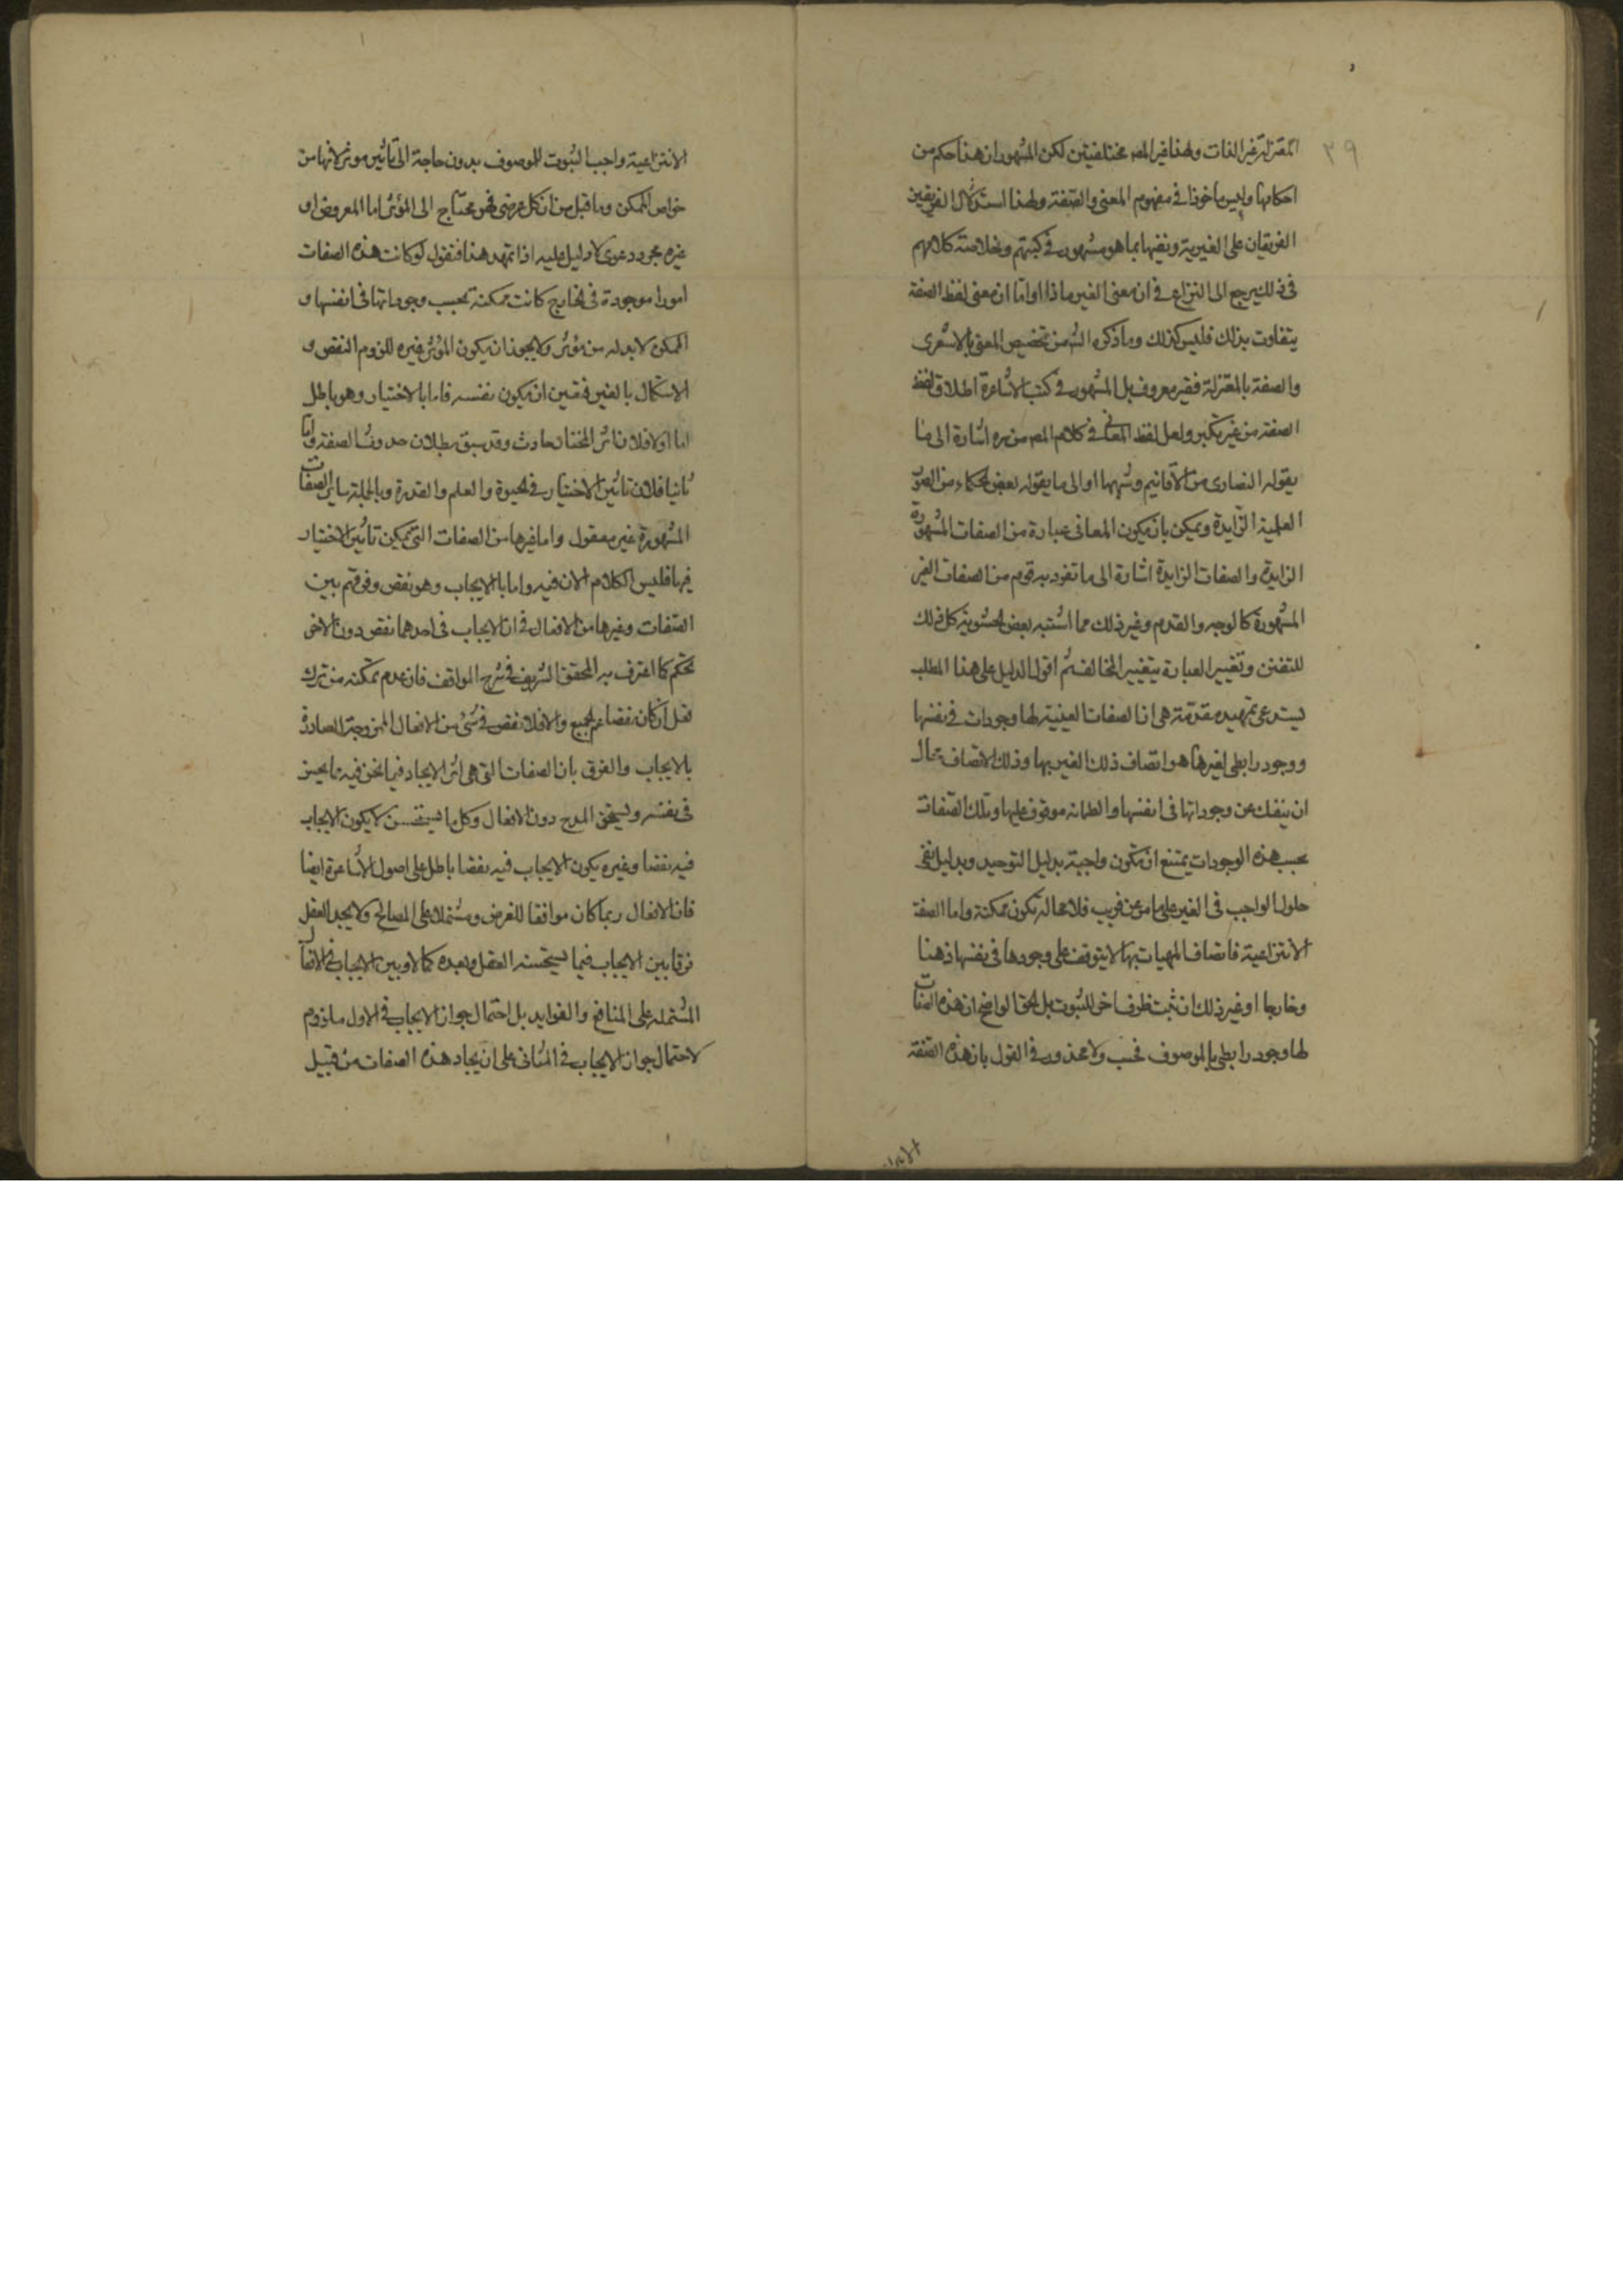 ٣٩
المعتزلة غير الذات ولهذا غير المص مختلفيتين لكن المشهور ان هذا حكم من
احكامها وليس ماخوذا في مفهوم المعنى والصفة ولهذا استدلال الفريقين
الفريقان على الغيرية ونفيها بما هو مشهور في كتبهم وخلاصة كلامهم
في ذلك يرجع الى النزاع في ان معنى الغير ماذا واما ان معنى لفظ الصفة
يتفاوت بذلك فليس كذلك وما ذكره الش من تخصيص المعنى بالاشعرى
والصفة بالمعتزلة فغير معروف بل المشهور في كتب الاشاعرة اطلاق لفظ
الصفة من غير نكير ولعل لفظ المعاني في كلام المص من ره اشارة الى ما
يقوله النصارى من الاقانيم وشبهها او الى ما يقوله بعض الحكماء من الصور
العلمية الزايدة ويمكن بان يكون المعانى عبارة من الصفات المشهورة
الزايدة والصفات الزايدة اشارة الى ما تفرد به قوم من الصفات الغير
المشهورة كالوجه والقدم وغير ذلك مما اثبته بعض الحشوية كل ذلك
للتفنن وتغيير العبارة بتغيير المخالف ثم اقول الدليل على هذا المطلب
يستدعى تمهيد مقدمة هى ان الصفات العينية لها وجودات في نفسها
ووجود رابطى لغيرها هو اتصاف ذلك الغير بها وذلك الاتصاف محال
ان ينفك عن وجوداتها فى انفسها و موقوف عليها وتلك الصفات
بحسب هذه الوجودات يمتنع ان تكون واجبة بدليل التوحيد وبدليل نفى
حلول الواجب فى الغير على ما مر عن قريب فلا محالة تكون ممكنة واما الصفة
الانتزاعية فاتصاف المهيات بها لا يتوقف على وجودها فى نفسها ذهنا
وخارجا او غير ذلك ان ثبت ظرف اخر للثبوت بل الحق الواضح ان هذه الصفات
لها وجود رابطى بالموصوف فحسب ولا محذور في القول بان هذه الصفة
الانتزاعية واجب الثبوت للموصوف بدون حاجة الى تاثير موثر لانها من
خواص الممكن وما قيل من ان كل عرضى فهو محتاج الى المؤثر اما المعروض او
غيره مجرد دعوى لا دليل عليه اذا تمهد هذا فنقول لو كانت هذه الصفات
امورا موجودة فى الخارج كانت ممكنة بحسب وجوداتها فى انفسها و
الممكن لا بد له من مؤثر ولا يجوز ان يكون المؤثر غيره للزوم النقص و
الاستكمال بالغير فتعين ان يكون نفسه فاما بالاختيار وهو باطل
اما اولا فلان اثر المختار حادث وقد سبق بطلان حدوث الصفة واما
ثانيا فلان تاثير الاختيار في الحيوة والعلم والقدرة وبالجملة ساير الصفات
المشهورة غير معقول واما غيرها من الصفات التى يمكن تاثير الاختيار
فيها فليس الكلام الان فيه واما بالايجاب وهو نقص وفرقهم بين
الصفات وغيرها من الافعال في ان الايجاب فى احدهما نقص دون الاخر
تحكم كما اعترف به المحقق الشريف في شرح المواقف فان عدم تمكنه من ترك
فعل ان كان نقصا عم الجميع والا فلا نقص في شئ من الافعال الصادرة
بالايجاب والفرق بان الصفات التى هى اثر الايجاد فيما نحن فيه
فى نفسه ويستحق المدح دون الافعال وكل ما يستحسن لا يكون الايجاب
فيه نقصا وغيره يكون الايجاب فيه نقصا باطل على اصول الاشاعرة ايضا
فان الافعال ربما كان موافقا للغرض ومشتملا على المصالح ولا يجد العقل
فرقا بين الايجاب فيما يستحسنه العقل ويعده كمالا وبين الايجاب في الافعال
المشتملة على المنافع والفوايد بل احتمال جواز الايجاب في الاول ملزوم
لاحتمال جواز الايجاب في الثانى على ان ايجاد هذه الصفات من قبيل